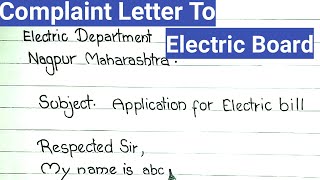 Complaint Letter To
Electric Board
Electric Department
Nagpur Maharashtra.
Subject. Application for Electric bill
Respected Sir,
My name is abc,